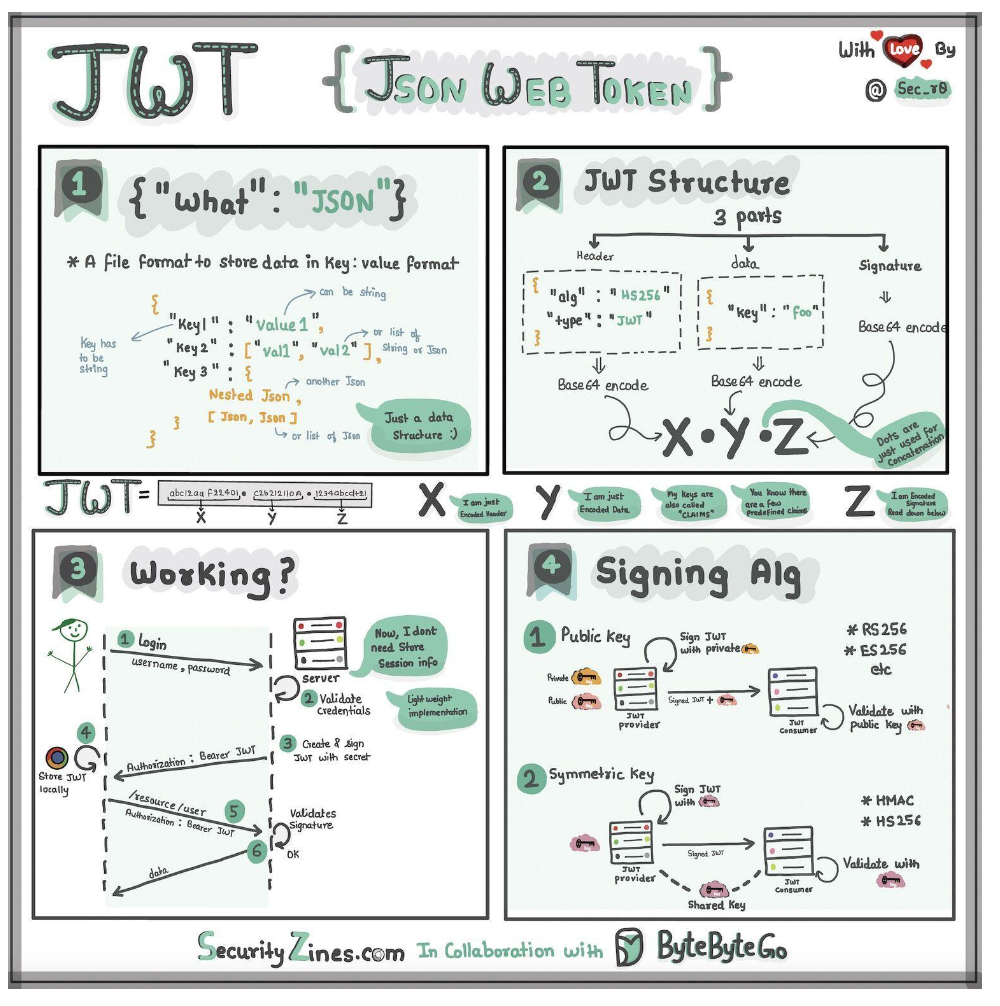 JWT
{JSON WEB TOKEN}
With Love By
@ Sec_r0
1
{"What": "JSON"}
* A file format to store data in Key: value format
can be string
{
"Key1" : "Value1",
Key has
to be
string
"Key2" : ["val1", "val2"],
or list of
String or Json
"Key 3" : {
another Json
Nested Json,
[Json, Json]
or list of Json
}
}
Just a data
Structure :)
2
JWT Structure
3 parts
Header
data
Signature
{
"alg" : "HS256"
"type" : "JWT"
}
{
"key" : "foo"
}
Base64 encode
Base64 encode
Base64 encode
X.Y.Z
Dots are
just used for
Concatenation
JWT =
abc12aa F22401. C2b212110A. 1234abcd+21
X
Y
Z
X
I am just
Encoded Header
Y
I am just
Encoded Data
My keys are
also called
"CLAIMS"
You know there
are a few
predefined claims
Z
I am Encoded
Signature
Read down below
3
Working?
1 Login
username, password
server
Now, I dont
need Store
Session info
2 Validate
credentials
Light weight
implementation
3 Create & sign
JWT with secret
Authorization : Bearer JWT
4
Store JWT
locally
/resource/user
Authorization : Bearer JWT
5
Validates
Signature
OK
6
data
4
Signing Alg
1 Public Key
Sign JWT
with private
* RS256
* ES256
etc
Private
Public
JWT
provider
Signed JWT +
JWT
Consumer
Validate with
public Key
2 Symmetric Key
Sign JWT
with
* HMAC
* HS256
JWT
provider
Signed JWT
JWT
Consumer
Validate with
Shared Key
SecurityZines.com In Collaboration with ByteByteGo